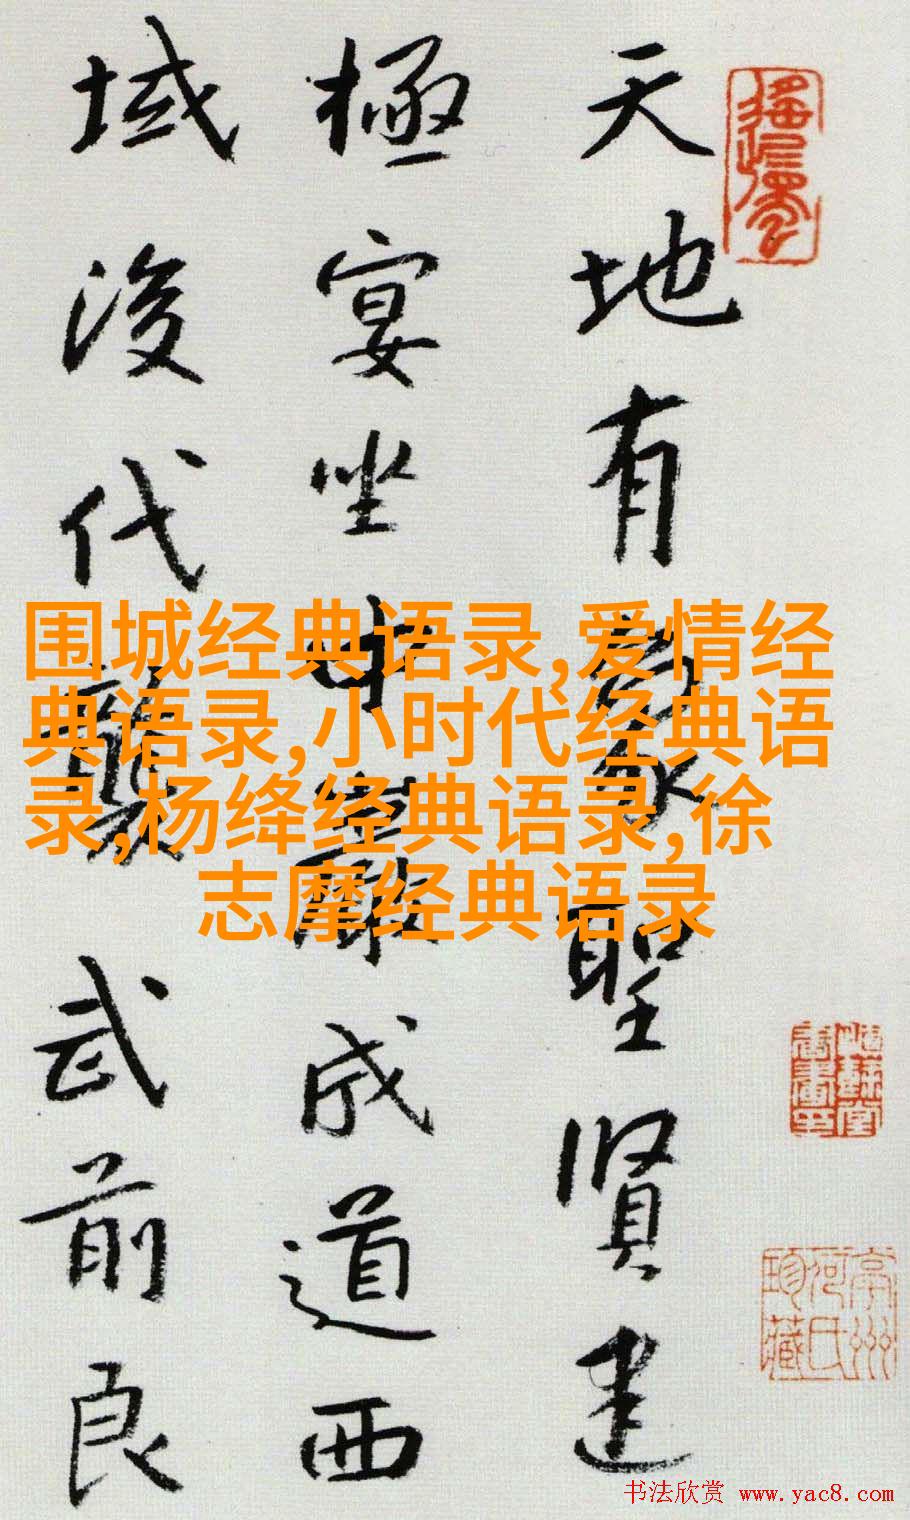 天地有象聖賢建
極宴坐中巖成道西
域後代襲武前良
围城经典语录,爱情经
典语录,小时代经典语
录,杨绛经典语录,徐
志摩经典语录
亭州
氏
珍藏
书法欣赏 www.yac8.com